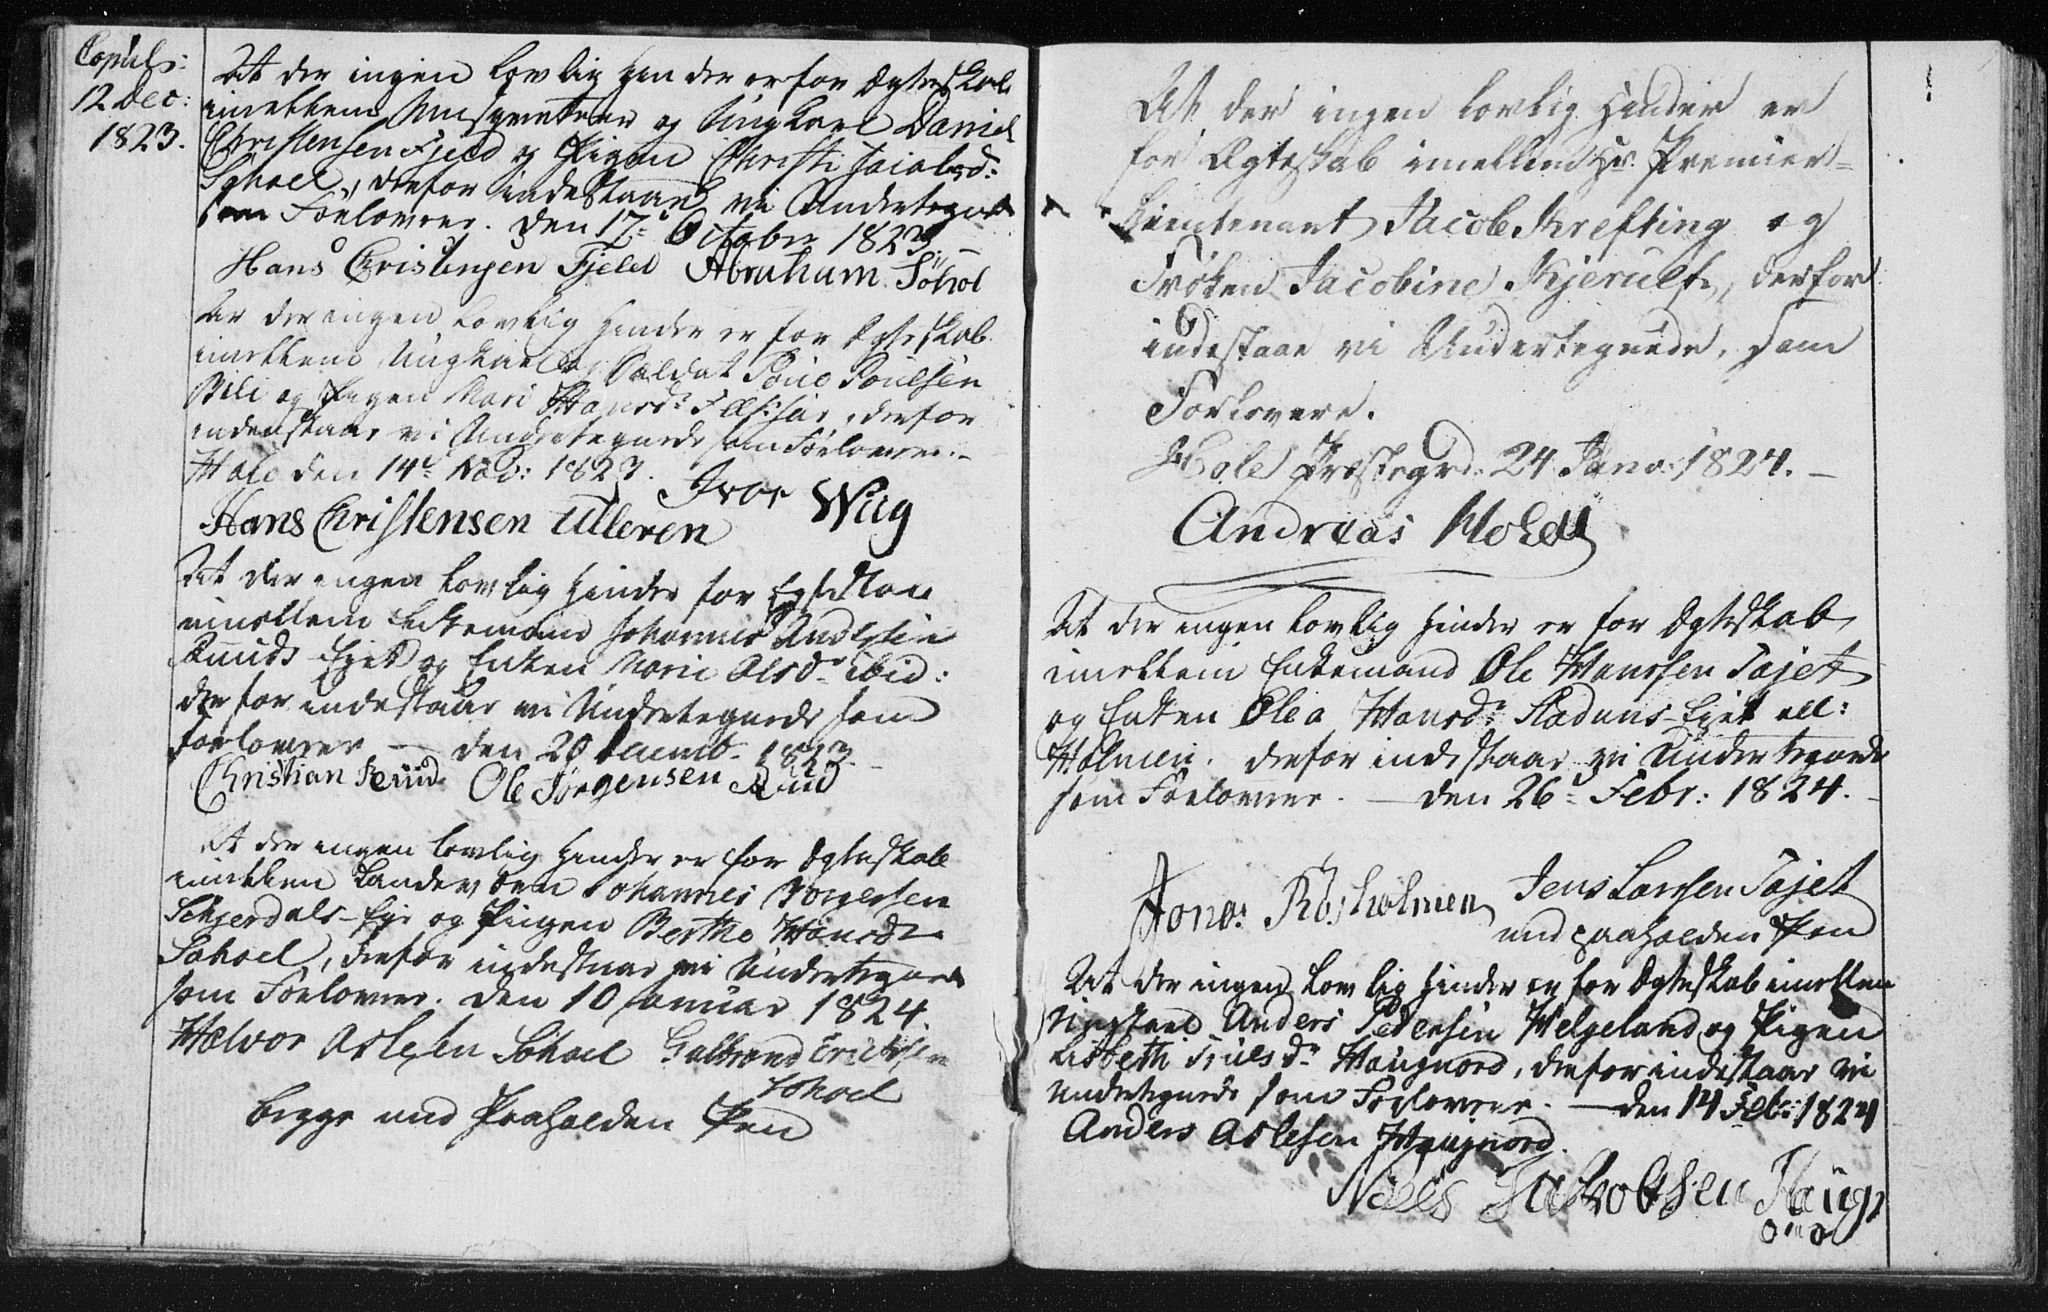 Copul:
12 Dec:
1823.
At der ingen lovlig Hinder er for Ægteskab
imellem og Ungkarl Daniel
Christensen Fjeld og Pigen Christi Jacobsd:
Sohoel, derfor indestaar vi Undertegnede
som Forlovere. Den 17de October 1823.
Hans Christensen Fjeld Abraham Sohol
At der ingen lovlig Hinder er for Ægteskab
imellem Ungkarl og Soldat Poul Poulsen
og Pigen Mari Hansdr derfor
indestaar vi Undertegnede som Forlovere.
Hole den 14de Nov: 1823. Iver Wiig
Hans Christensen Ulleren
At der ingen lovlig Hinder for Egteskab
imellem Enkemand Johannes Andersen
Ruuds Eget og Enken Marie Olsdr ibid:
derfor indestaar vi Undertegnede som
Forlovere — den 20 Decemb. 1823.
Christian Ruud Ole Jørgensen Ruud
At der ingen lovlig Hinder er for Ægteskab
imellem Landev: Johannes Jörgensen
Schjerdals-Eje og Pigen Berthe Hansdr
Sohoel, derfor indestaar vi Undertegnede
som Forlovere. Den 10 Januar 1824.
Halvor Aslesen Sohoel Gulbrand Erichsen
Sohoel
begge med Paaholden Pen
At der ingen lovlig Hinder er
for Ægteskab imellem Hr. Premier-
Lieutenant Jacob Krefting og
Frøken Jacobine Kjerulf, derfor
indestaae vi Undertegnede, som
Forlovere.
Hole Præstegrd. 24 Janv. 1824. —
Andreas Moldt
At der ingen lovlig Hinder er for Ægteskab
imellem Enkemand Ole Hanssen Tajet
og Enken Olea Hansdr Stadums-Eget ell:
Holmen. derfor indestaar vi Undertegnede
som Forlovere. — den 26de Febr: 1824.
Jonas Røsholmen Jens Larssen Tajet
med paaholden Pen
At der ingen lovlig Hinder er for Ægteskab imellem
Ungkarl Anders Pedersen Helgeland og Pigen
Lisbeth Truelsdr Haugnord, derfor indestaar vi
Undertegnede som Forlovere. — den 14 Feb: 1824
Anders Aslesen Haugnord.
Niels Jakobsen Haug